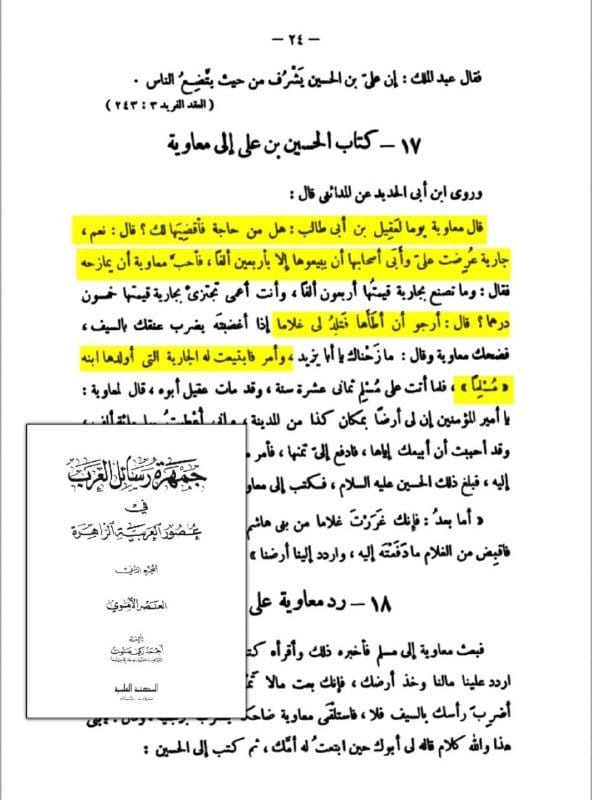 — ٢٤ —
فقال عبد الملك : إن علىّ بن الحسين يَشْرُف من حيث يتَّضِعُ الناس .
( العقد الفريد ٣ : ٢٤٣ )
١٧ - كتاب الحسين بن على إلى معاوية
وروى ابن أبى الحديد عن المدائنى قال :
قال معاوية يوما لعَقِيل بن أبى طالب : هل من حاجة فأقضيَها لك ؟ قال : نعم ،
جارية عُرِضت علىّ وأَبَى أصحابها أن يبيعوها إلا بأربعين ألفا ، فأحبَّ معاوية أن يمازحه
فقال : وما تصنع بجارية قيمتُها أربعون ألفا ، وأنت أعمى تجتزئ بجارية قيمتها خمسون
درهما ؟ قال : أرجو أن أطأها فتلدَ لى غلاما إذا أغضبتَه يضرب عنقك بالسيف ،
فضحك معاوية وقال : مازَحْناك يا أبا يزيد ، وأمر فابتيعت له الجارية التى أولدها ابنه
« مُسْلِماً » ، فلما أتت على مُسْلم ثمانى عشرة سنة ، وقد مات عقيل أبوه ، قال لمعاوية :
يا أمير المؤمنين إن لى أرضًا بمكان كذا من المدينة ، وإنى أُعْطِيتُ بها مائة ألف ،
وقد أحببت أن أبيعك إياها ، فادفع إلىّ ثمنها ، فأمر
إليه ، فبلغ ذلك الحسين عليه السلام ، فكتب إلى معاو
« أما بعدُ : فإنك غَرَرْتَ غلاما من بنى هاشم
فاقبِض من الغلام ما دَفَعْتَه إليه ، واردد إلينا أرضنا »
١٨ - رد معاوية على
فبعث معاوية إلى مسلم فأخبره ذلك وأقرأه كتا
اردد علينا مالنا وخذ أرضك ، فإنك بعت مالا تَم
أضرِبَ رأسك بالسيف فلا ، فاستلْقَى معاوية ضاحكا
هذا والله كلام قاله لى أبوك حين ابتعتُ له أمَّك ، ثم كتب إلى الحسين :
جمهرة رسائل العرب
فى
عصور العربية الزاهرة
الجزء الثانى
العصر الأموى
تأليف
أحمد زكى صفوت
المكتبة العلمية